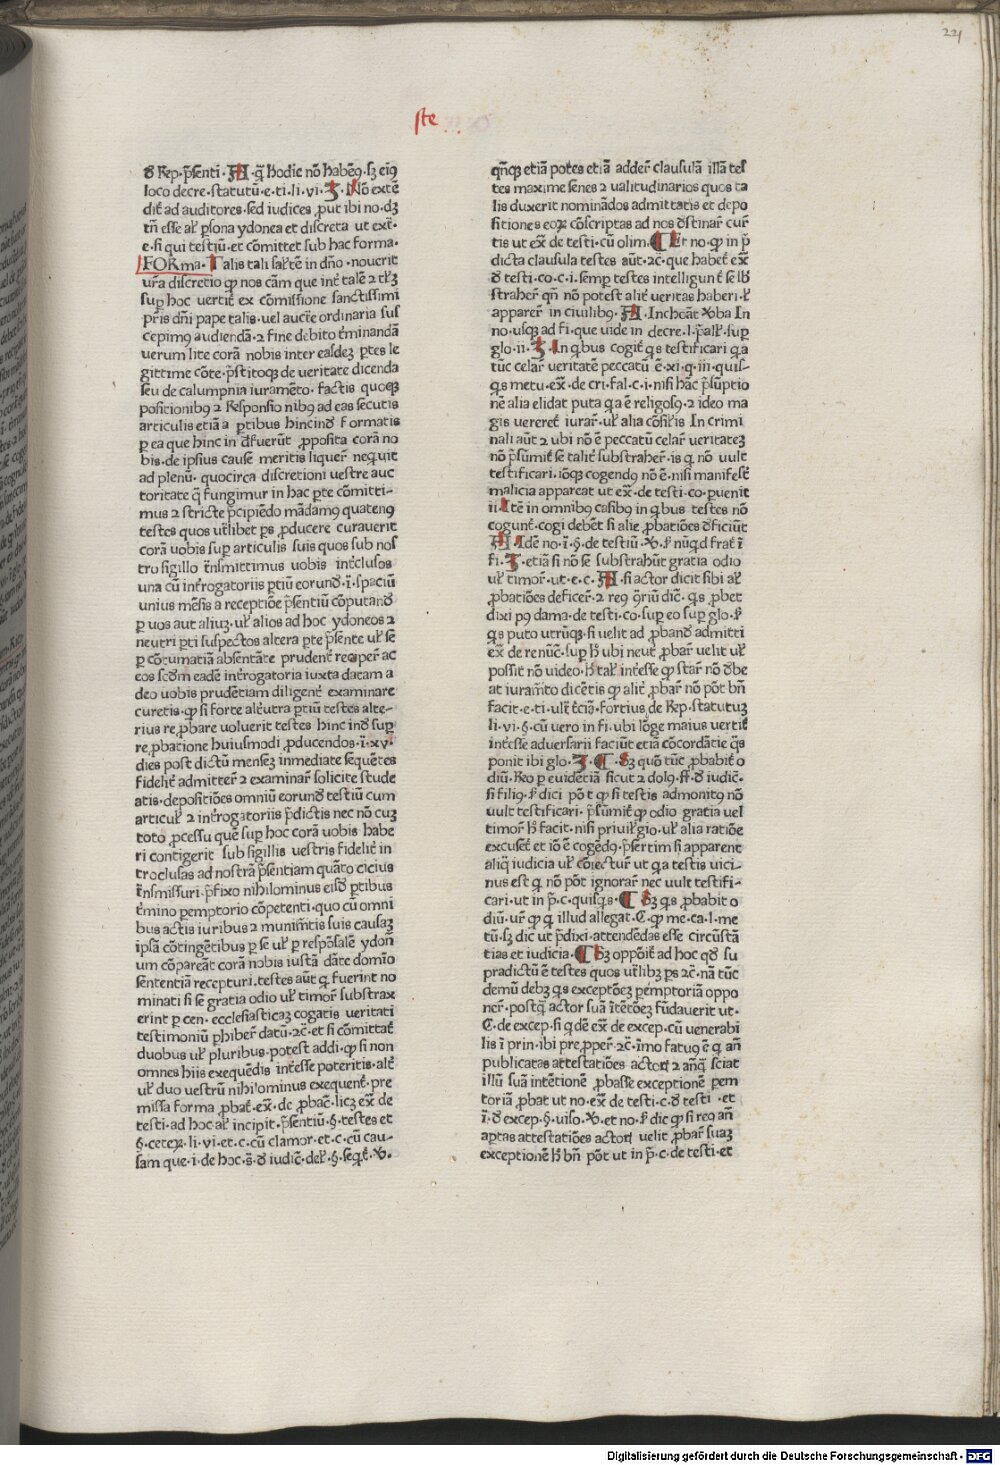 221
ste
ꝺ Rep·p̄senti·A·q̄ hodie nō habēꝰ·sꝫ eiꝰ
loco decre·statutū·e·ti·li·vi·J·Nō extē
dit᷑ ad auditores·sed iudices ꝓut ibi no·dꝫ
tn̄ esse al᷑ ꝑsona ydonea et discreta ut ext᷑·
e·si qui testiū·et cōmittet sub hac forma·
FORma·Talis tali salt᷑e in dn̄o·nouerit
ur̄a discretio ꝙ nos cām que int᷑ talē ⁊ tl᷑ꝫ
suꝑ hoc vertit᷑ ex cōmissione sanctissimi
pr̄is dn̄i pape talis·uel aucte ordinaria sus
cepimꝰ audiendā·⁊ fine debito t᷑minandā
uerum lite corā nobis inter easdeꝫ ꝑtes le
gittime cōte·p̄stitoqꝫ de veritate dicenda
seu de calumpnia iuramēto·factis quoqꝫ
positionibꝰ ⁊ Responsio nibꝰ ad eas secutis
articulis etiā a ꝑtibus hincinꝺ formatis
ꝑ ea que hinc in ꝺfuerūt ꝓposita corā no
bis·de ipsius cause meritis liquer̄ neqͥuit
ad plenū·quocirca discretioni uestre auc
toritate q̄ fungimur in hac ꝑte cōmitti-
mus ⁊ stricte p̄cipiēdo mādamꝰ quatenꝰ
testes quos utl᷑ibet ꝑs ꝓducere curauerit
corā uobis suꝑ articulis suis quos sub nos
tro sigillo t᷑nsmittimus uobis int᷑clusos
una cū int᷑rogatoriis ꝑtiū eorunꝺ·ī·spaciū
unius mēsis a receptiōe p̄sentiū cōputanꝺ
ꝑ uos aut aliuꝫ·ul᷑ alios ad hoc ydoneos ⁊
neutri ꝑti suspectos altera ꝑte p̄sente ul᷑ sē
ꝑ cōtumatiā absentāte prudent᷑ reciper̄ ac
eos scd̄m eadē int᷑rogatoria iuxta datam a
deo uobis prudētiam diligent᷑ examinare
curetis·ꝙ si forte alt᷑utra ꝑtiū testes alte-
rius reꝓbare voluerit testes hinc inꝺ suꝑ
reꝓbatione huiusmodi ꝓducendos·ī·xv·
dies post dictū menseꝫ inmediate sequētes
fidelit᷑ admitter̄ ⁊ examinar̄ solicite stude
atis·depositiōes omniū eorunꝺ testiū cum
articul᷑ ⁊ int᷑rogatoriis p̄dictis nec nō cuꝫ
toto ꝓcessu quē suꝑ hoc corā uobis habe
ri contigerit sub sigillis vestris fidelit᷑ in
troclusas ad nostrā p̄sentiam quāto cicius
t᷑nsmissuri·p̄fixo nihilominus eisꝺ ꝑtibus
t᷑mino pemptorio cōpetenti·quo cū omni
bus actis iuribus ⁊ munim̄tis suis causaꝫ
ipsā cōtingētibus ꝑ se ul᷑ ꝑ respōsalē ydon̄
um cōpareāt corā nobis iustā dāte domīo
sententiā recepturi·testes aūt qͥ fuerint no
minati si se gratia odio ul᷑ timor̄ substrax
erint ꝑ cen·ecclesiasticaꝫ cogatis veritati
testimoniū ꝑhiber̄ datū·⁊c̄·et si cōmittat᷑
duobus ul᷑ pluribus·potest addi·ꝙ si non
omnes hiis exequēdis int᷑esse poteritis·alt᷑
ul᷑ duo vestrū nihilominus exequent᷑·pre
missa forma ꝓbat᷑·ex̄·de ꝓbac̄·licꝫ ex̄ de
testi·ad hoc al᷑ incipit·p̄sentiū·§·testes et
§·ceteꝝ·li·vi·et·c·cū clamor·et·c·cū cau-
sam que·i·de hoc·s̄·ꝺ iudic̄·del᷑·§·seqͥt᷑·℣·
qn̄qꝫ etiā potes etiā adder̄ clausulā illā tes
tes maxime senes ⁊ ualitudinarios quos ta
lis duxerit nominādos admittatis et depo
sitiones eoꝝ cōscriptas ad nos ꝺstinar̄ cur̄
tis ut ex̄ de testi·cū olim·¶Et no·ꝙ in p̄
dicta clausula testes aūt·⁊c̄·que habet᷑ ex̄
ꝺ testi·co·c·i·semꝑ testes intelligunt᷑ se sb̄
straher̄ qn̄ nō potest alit᷑ veritas haberi·ul᷑
apparer̄ in ciuilibꝰ·A·Incheāt ℣ba In
no·usqꝫ ad fi·que uide in decre·l·p̄all᷑·suꝑ
glo·ii·J·In qͥbus cogit᷑ qͥs testificari qͥa
tūc celar̄ veritatē peccatū ē·xi·q·iii·quis-
qͥs metu·ex̄·de cri·fal·c·i·nisi hāc p̄sūptio
nē alia elidat puta qͥa ē religosꝰ·⁊ ideo ma
gis vereret᷑ iurar̄·ul᷑ alia cōsil᷑is In crimi
nali aūt ⁊ ubi nō ē peccatū celar̄ veritateꝫ
nō p̄sūmit᷑ se talit᷑ substraher̄·is qͥ nō uult
testificari·ioqꝫ cogendꝰ nō ē·nisi manifest᷑
malicia appareat ut ex̄·de testi·co·ꝑuenit
ii·Itē in omnibꝰ casibꝰ in qͥbus testes nō
cogunt᷑·cogi debēt si alie ꝓbatiōes ꝺficiūt
A·Idē no·ī·§·de testiū·℣·s᷑ nūqͥd frat᷑ ī
fi·J·etiā si nō se substrahūt gratia odio
ul᷑ timor̄·ut·e·c·A·si actor dicit sibi al᷑
ꝓbatiōes deficer̄·⁊ reꝰ ꝯ̄riū dic̄·qͥs ꝓbet
dixi pꝰ dama·de testi·co·suꝑ eo suꝑ glo·s᷑
qͥs puto utrūqꝫ·si uelit ad ꝓbanꝺ admitti
ex̄ de renūc̄·suꝑ h᷑ ubi neut᷑ ꝓbar̄ velit ul᷑
possit nō video·h᷑ tal᷑ int᷑esse ꝙ star̄ nō ꝺbe
at iuram̄to dicētis ꝙ alit᷑ ꝓbar̄ nō pōt bn̄
facit·e·ti·ult᷑ t᷑ciā·fortius de Rep·statutuꝫ
li·vi·§·cū uero in fi·ubi lōge maius vertit᷑
int᷑esse aduersarii faciūt etiā cōcordātie qͥs
ponit ibi glo·J·¶·Sꝫ quō tūc ꝓbabit᷑ o
diū·Reo ꝑ euidētiā sicut ⁊ dolꝰ·ff·ꝺ iudic̄·
si filiꝰ·s᷑ dici pōt ꝙ si testis admonitꝰ nō
uult testificari·p̄sūmit᷑ ꝙ odio gratia uel
timor̄ h᷑ facit·nisi priuil᷑gio·ul᷑ alia ratiōe
excuset᷑ et iō ē cogēdꝰ·p̄sertim si apparent
aliq̄ iudicia ul᷑ cōiectur̄ ut qͥa testis uici-
nus est qͥ nō pōt ignorar̄ nec uult testifi-
cari·ut in p̄·c·quisqͥs·¶Sꝫ qͥs ꝓbabit o
diū·ur̄ ꝙ qͥ illud allegat·C·ꝙ me·ca·l·me
tū·sꝫ dic ut p̄dixi·attendēdas esse circūstā
tias et iudicia·¶Sꝫ oppōit᷑ ad hoc qꝺ su
pradictū ē testes quos utl᷑ibꝫ ꝑs ⁊c̄·nā tūc
demū debꝫ qͥs exceptōeꝫ ꝑemptoriā oppo
ner̄·postqͣ actor suā ītētōeꝫ fūdauerit ut·
C·de excep·si qͥdē ex̄ de excep·cū uenerabi
lis ī prin·ibi preꝓper̄·⁊c̄·īmo fatuꝰ ē qͥ an̄
publicatas attestatiōes actor᷑ ⁊ an̄qͣ sciat
illū suā intētionē ꝓbasse exceptionē pem
toriā ꝓbat ut no·ex̄ de testi·c·ꝺ testi·et
ī·ꝺ excep·§·uiso·℣·et no·s᷑ dic ꝙ si reꝰ an̄
aꝑtas attestatiōes actor᷑ uelit ꝓbar̄ suaꝫ
exceptionē h᷑ bn̄ pōt ut in p̄·c·de testi·et
Digitalisierung gefördert durch die Deutsche Forschungsgemeinschaft · DFG